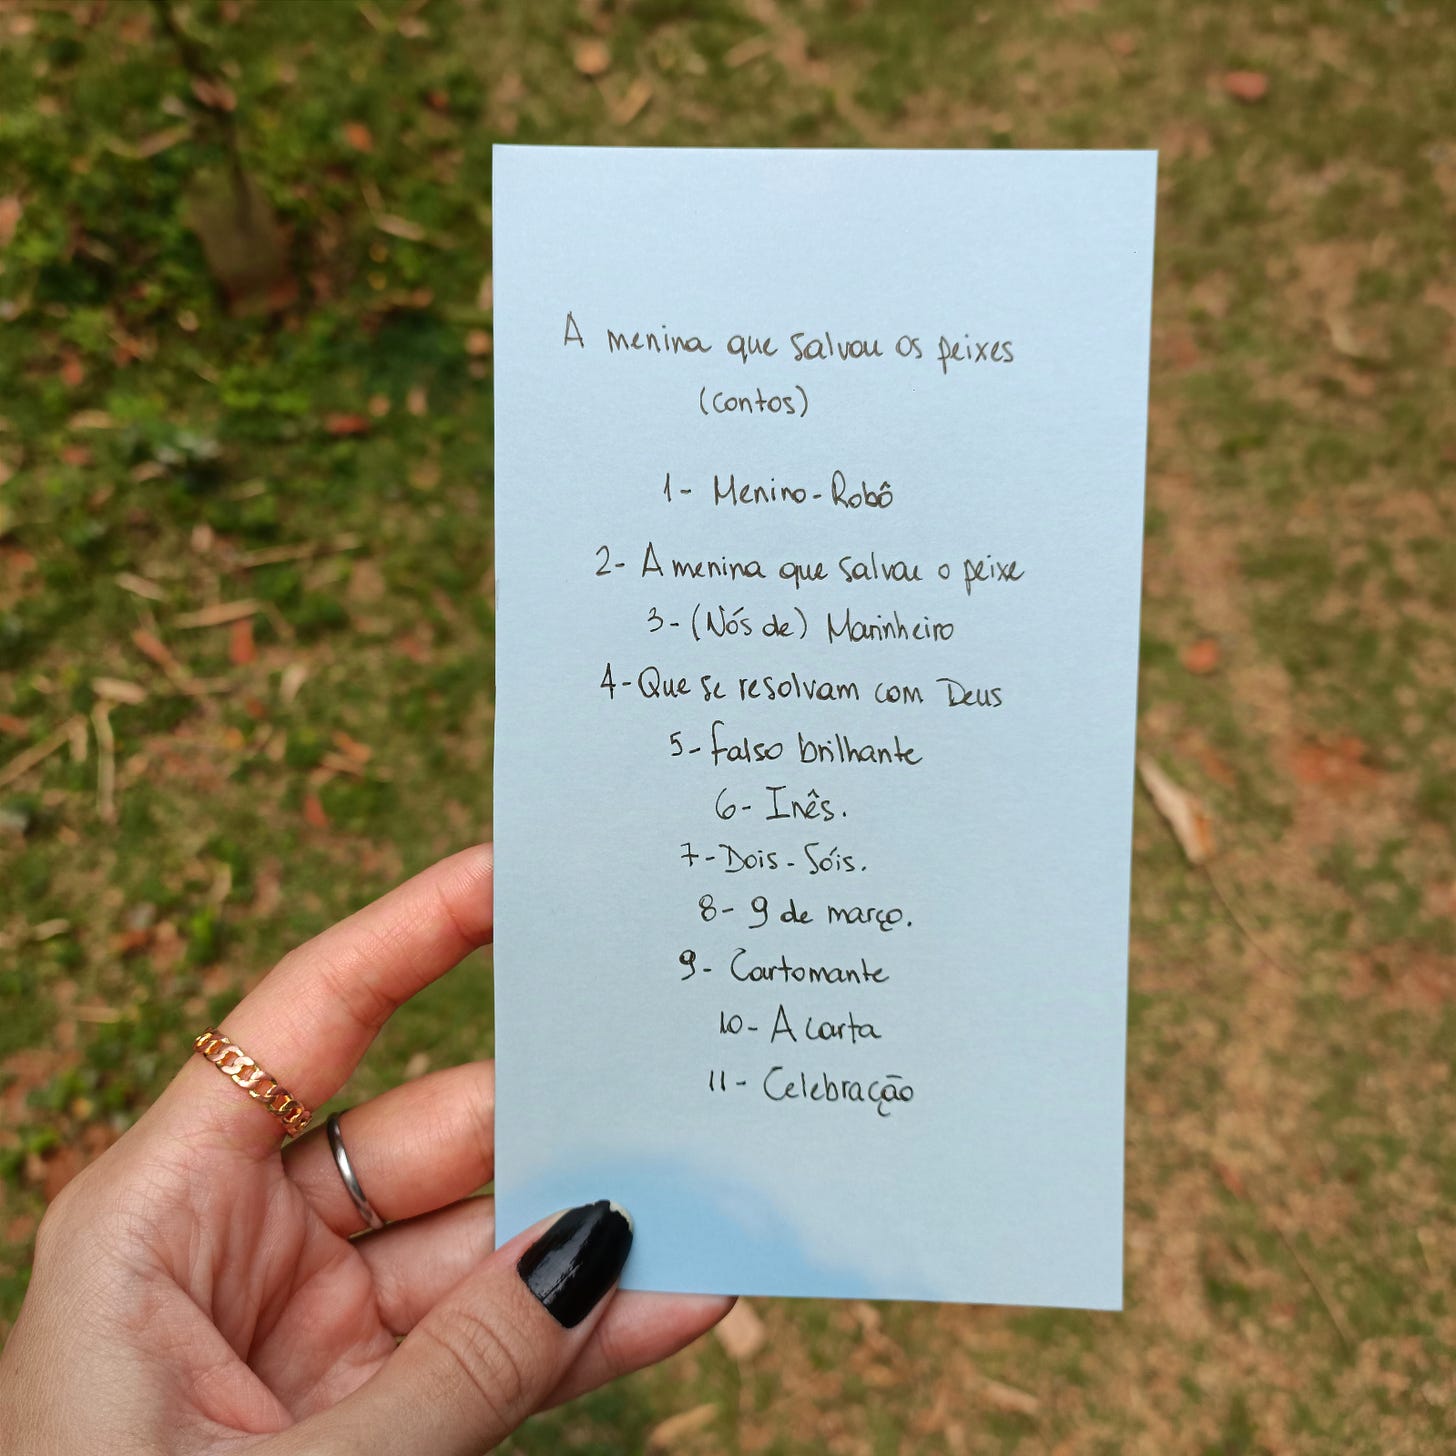 A menina que salvou os peixes
(contos)
1- Menino-Robô
2- A menina que salvou o peixe
3- (Nós de) Marinheiro
4- Que se resolvam com Deus
5- falso brilhante
6- Inês.
7- Dois-Sóis.
8- 9 de março.
9- Cartomante
10- A carta
11- Celebração